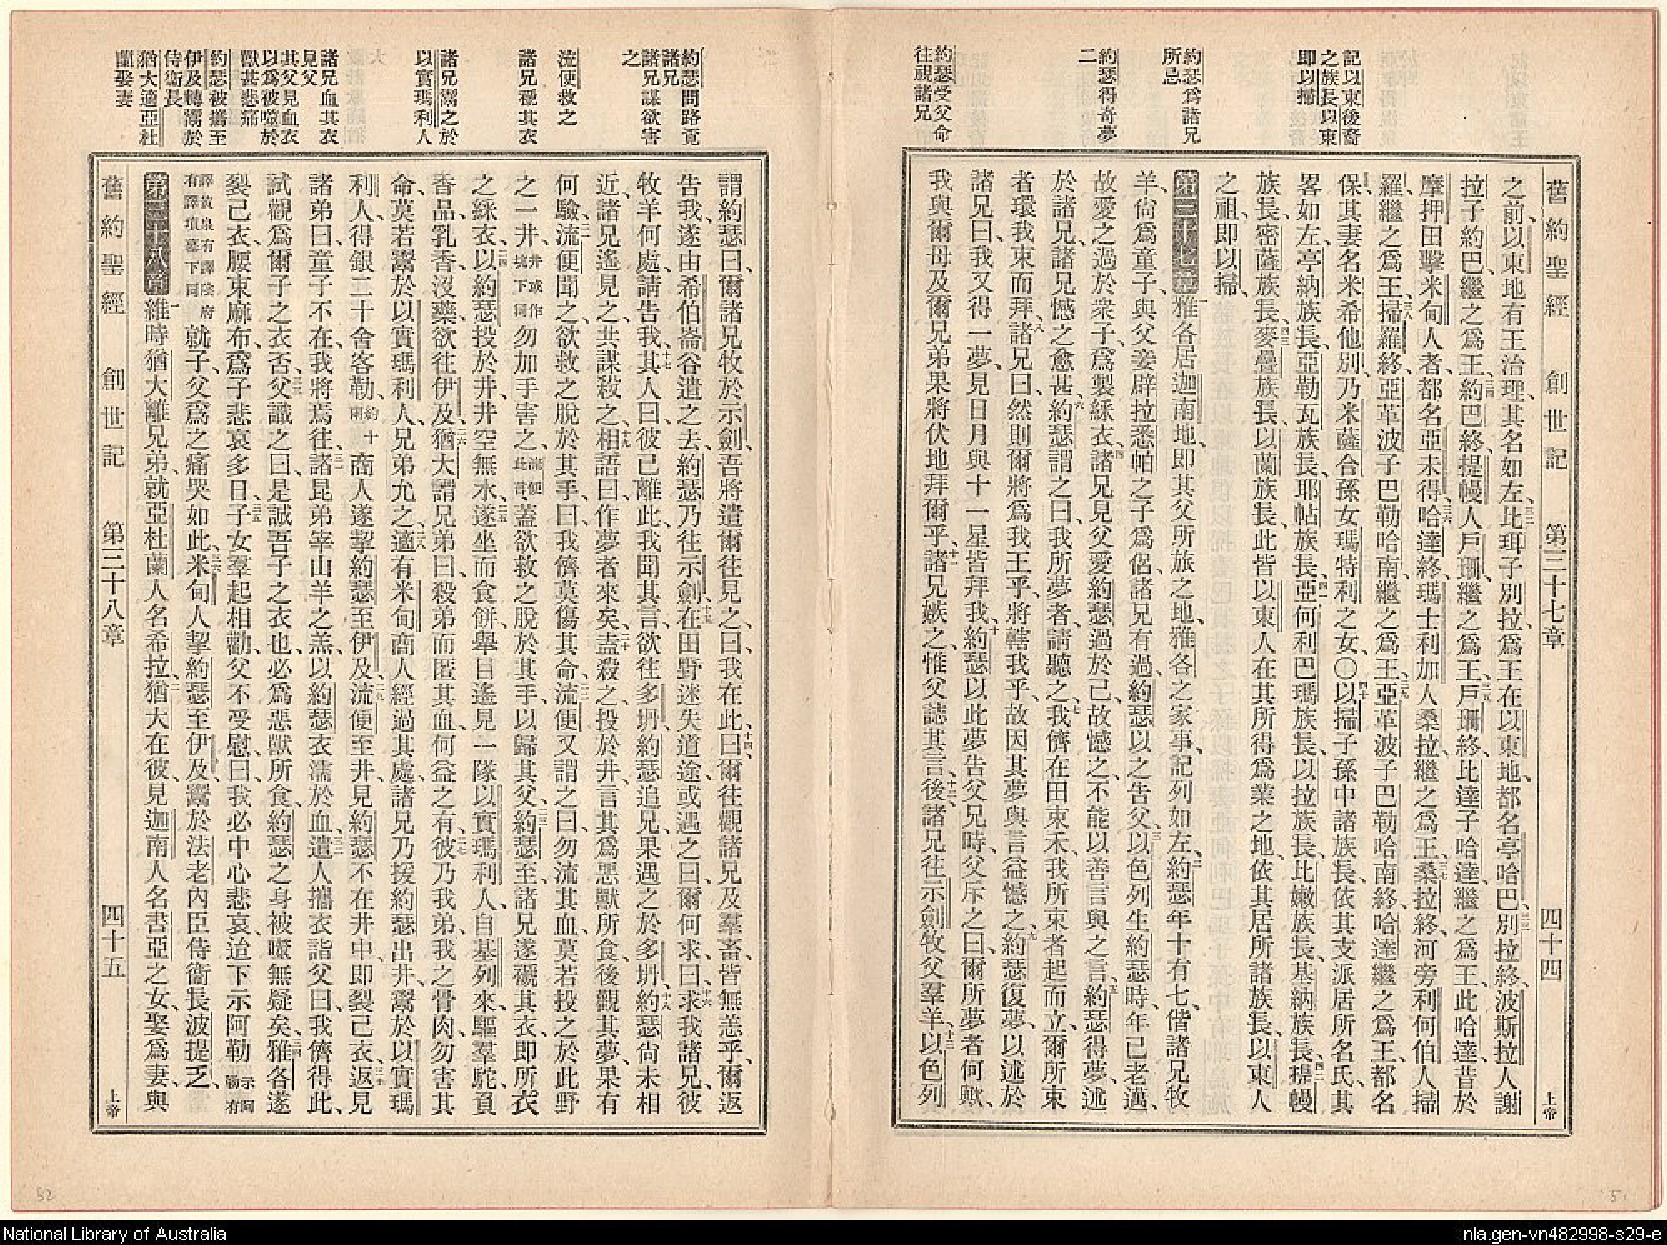 舊約聖經 創世記 第三十七章 四十四 上帝
記以東後裔
之族長以東
即以掃
約瑟爲諸兄
所忌
約瑟得奇夢
二
約瑟受父命
往視諸兄
之前以東地有王治理其名如左比珥子別拉爲王在以東地都名亭哈巴別拉終波斯拉人謝
拉子約巴繼之爲王約巴終提幔人戶珊繼之爲王戶珊終比達子哈達繼之爲王此哈達昔於
摩押田擊米甸人者都名亞未得哈達終瑪士利加人桑拉繼之爲王桑拉終河旁利何伯人掃
羅繼之爲王掃羅終亞革波子巴勒哈南繼之爲王亞革波子巴勒哈南終哈達繼之爲王都名
保其妻名米希他別乃米薩合孫女瑪特利之女〇以掃子孫中諸族長依其支派居所名氏其
畧如左亭納族長亞勒瓦族長耶帖族長亞何利巴瑪族長以拉族長比嫩族長基納族長提幔
族長密薩族長麥疊族長以蘭族長此皆以東人在其所得爲業之地依其居所諸族長以東人
之祖即以掃
第三十七章 雅各居迦南地即其父所旅之地雅各之家事記列如左約瑟年十有七偕諸兄牧
羊尙爲童子與父妾辟拉悉帕之子爲侶諸兄有過約瑟以之告父以色列生約瑟時年已老邁
故愛之過於衆子爲製綵衣諸兄見父愛約瑟過於己故憾之不能以善言與之言約瑟得夢述
於諸兄諸兄憾之愈甚約瑟謂之曰我所夢者請聽之我儕在田束禾我所束者起而立爾所束
者環我束而拜諸兄曰然則爾將爲我王乎將轄我乎故因其夢與言益憾之約瑟復夢以述於
諸兄曰我又得一夢見日月與十一星皆拜我約瑟以此夢告父兄時父斥之曰爾所夢者何歟
我與爾母及爾兄弟果將伏地拜爾乎諸兄嫉之惟父誌其言後諸兄往示劍牧父羣羊以色列
約瑟問路覓
諸兄
諸兄謀欲害
之
流便救之
諸兄褫其衣
諸兄鬻之於
以實瑪利人
諸兄血其衣
見父
其父見血衣
以爲被噬於
獸甚悲痛
約瑟被攜至
伊及轉鬻於
侍衞長
猶大適亞杜
蘭娶妻
謂約瑟曰爾諸兄牧於示劍吾將遣爾往見之曰我在此曰爾往觀諸兄及羣畜皆無恙乎爾返
告我遂由希伯崙谷遣之去約瑟乃往示劍在田野迷失道途或遇之曰爾何求曰求我諸兄彼
牧羊何處請告我其人曰彼已離此我聞其言欲往多坍約瑟追兄果遇之於多坍約瑟尙未相
近諸兄遙見之共謀殺之相語曰作夢者來矣盍殺之投於井言其爲惡獸所食後觀其夢果有
何驗流便聞之欲救之脫於其手曰我儕莫傷其命流便又謂之曰勿流其血莫若投之於此野
之一井井或作坑下同勿加手害之流便此言蓋欲救之脫於其手以歸其父約瑟至諸兄遂褫其衣即所衣
之綵衣以約瑟投於井井空無水遂坐而食餅舉目遙見一隊以實瑪利人自基列來驅羣駝負
香品乳香沒藥欲往伊及猶大謂兄弟曰殺弟而匿其血何益之有彼乃我弟我之骨肉勿害其
命莫若鬻於以實瑪利人兄弟允之適有米甸商人經過其處諸兄乃援約瑟出井鬻於以實瑪
利人得銀二十舍客勒約十兩商人遂挈約瑟至伊及流便至井見約瑟不在井中即裂己衣返見
諸弟曰童子不在我將焉往諸昆弟宰山羊之羔以約瑟衣濡於血遣人攜衣詣父曰我儕得此
試觀爲爾子之衣否父識之曰是誠吾子之衣也必爲惡獸所食約瑟之身被噬無疑矣雅各遂
裂己衣腰束麻布爲子悲哀多日子女羣起相勸父不受慰曰我必中心悲哀迨下示阿勒示阿勒有
譯黃泉有譯陰府有譯墳墓下同就子父爲之痛哭如此米甸人挈約瑟至伊及鬻於法老內臣侍衞長波提乏
第三十八章 維時猶大離兄弟就亞杜蘭人名希拉猶大在彼見迦南人名書亞之女娶爲妻與
舊約聖經 創世記 第三十八章 四十五 上帝
52
51
National Library of Australia
nla.gen-vn482998-s29-e